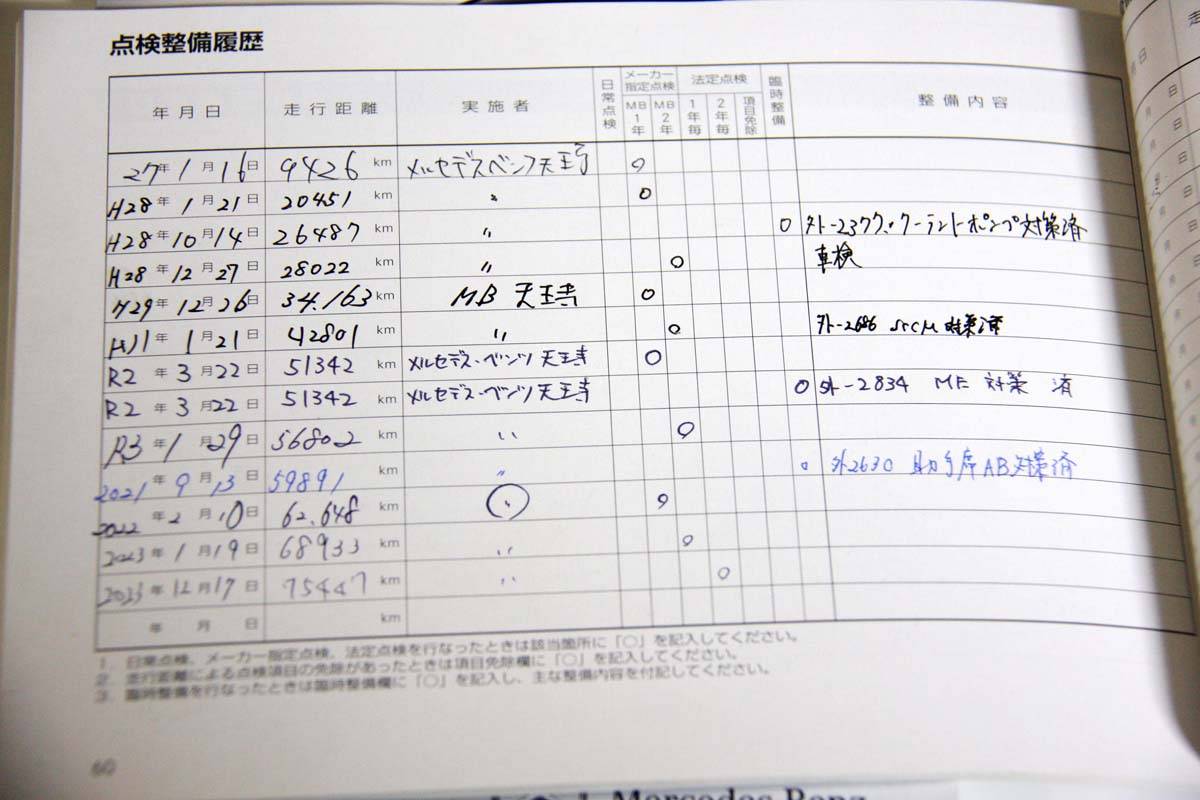 点検整備履歴
年月日 走行距離 実施者 日常点検 メーカー指定点検 MB1年 MB2年 法定点検 1年毎 2年毎 項目免除 臨時整備 整備内容
27年1月16日 9426km メルセデスベンツ天王寺 ○
H28年1月21日 20451km 〃 ○
H28年10月14日 26487km 〃 ○ 外-2377.クーラントポンプ対策済
H28年12月27日 28022km 〃 ○ 車検
H29年12月26日 34.163km MB 天王寺 ○
H31年1月21日 42801km 〃 ○ 外-2686 対策済
R2年3月22日 51342km メルセデス・ベンツ天王寺 ○
R2年3月22日 51342km メルセデス・ベンツ天王寺 ○ 外-2834 対策 済
R3年1月29日 56802km 〃 ○
2021年9月13日 59891km 〃 ○ 外2630 助手席AB対策済
2022年2月10日 62.648km 〃 ○
2023年1月19日 68933km 〃 ○
2023年12月17日 75447km 〃 ○
年 月 日 km
1. 日常点検、メーカー指定点検、法定点検を行なったときは該当箇所に「○」を記入してください。
2. 走行距離による点検項目の免除があったときは項目免除欄に「○」を記入してください。
3. 臨時整備を行なったときは臨時整備欄に「○」を記入し、主な整備内容を付記してください。
60
Mercedes-Benz